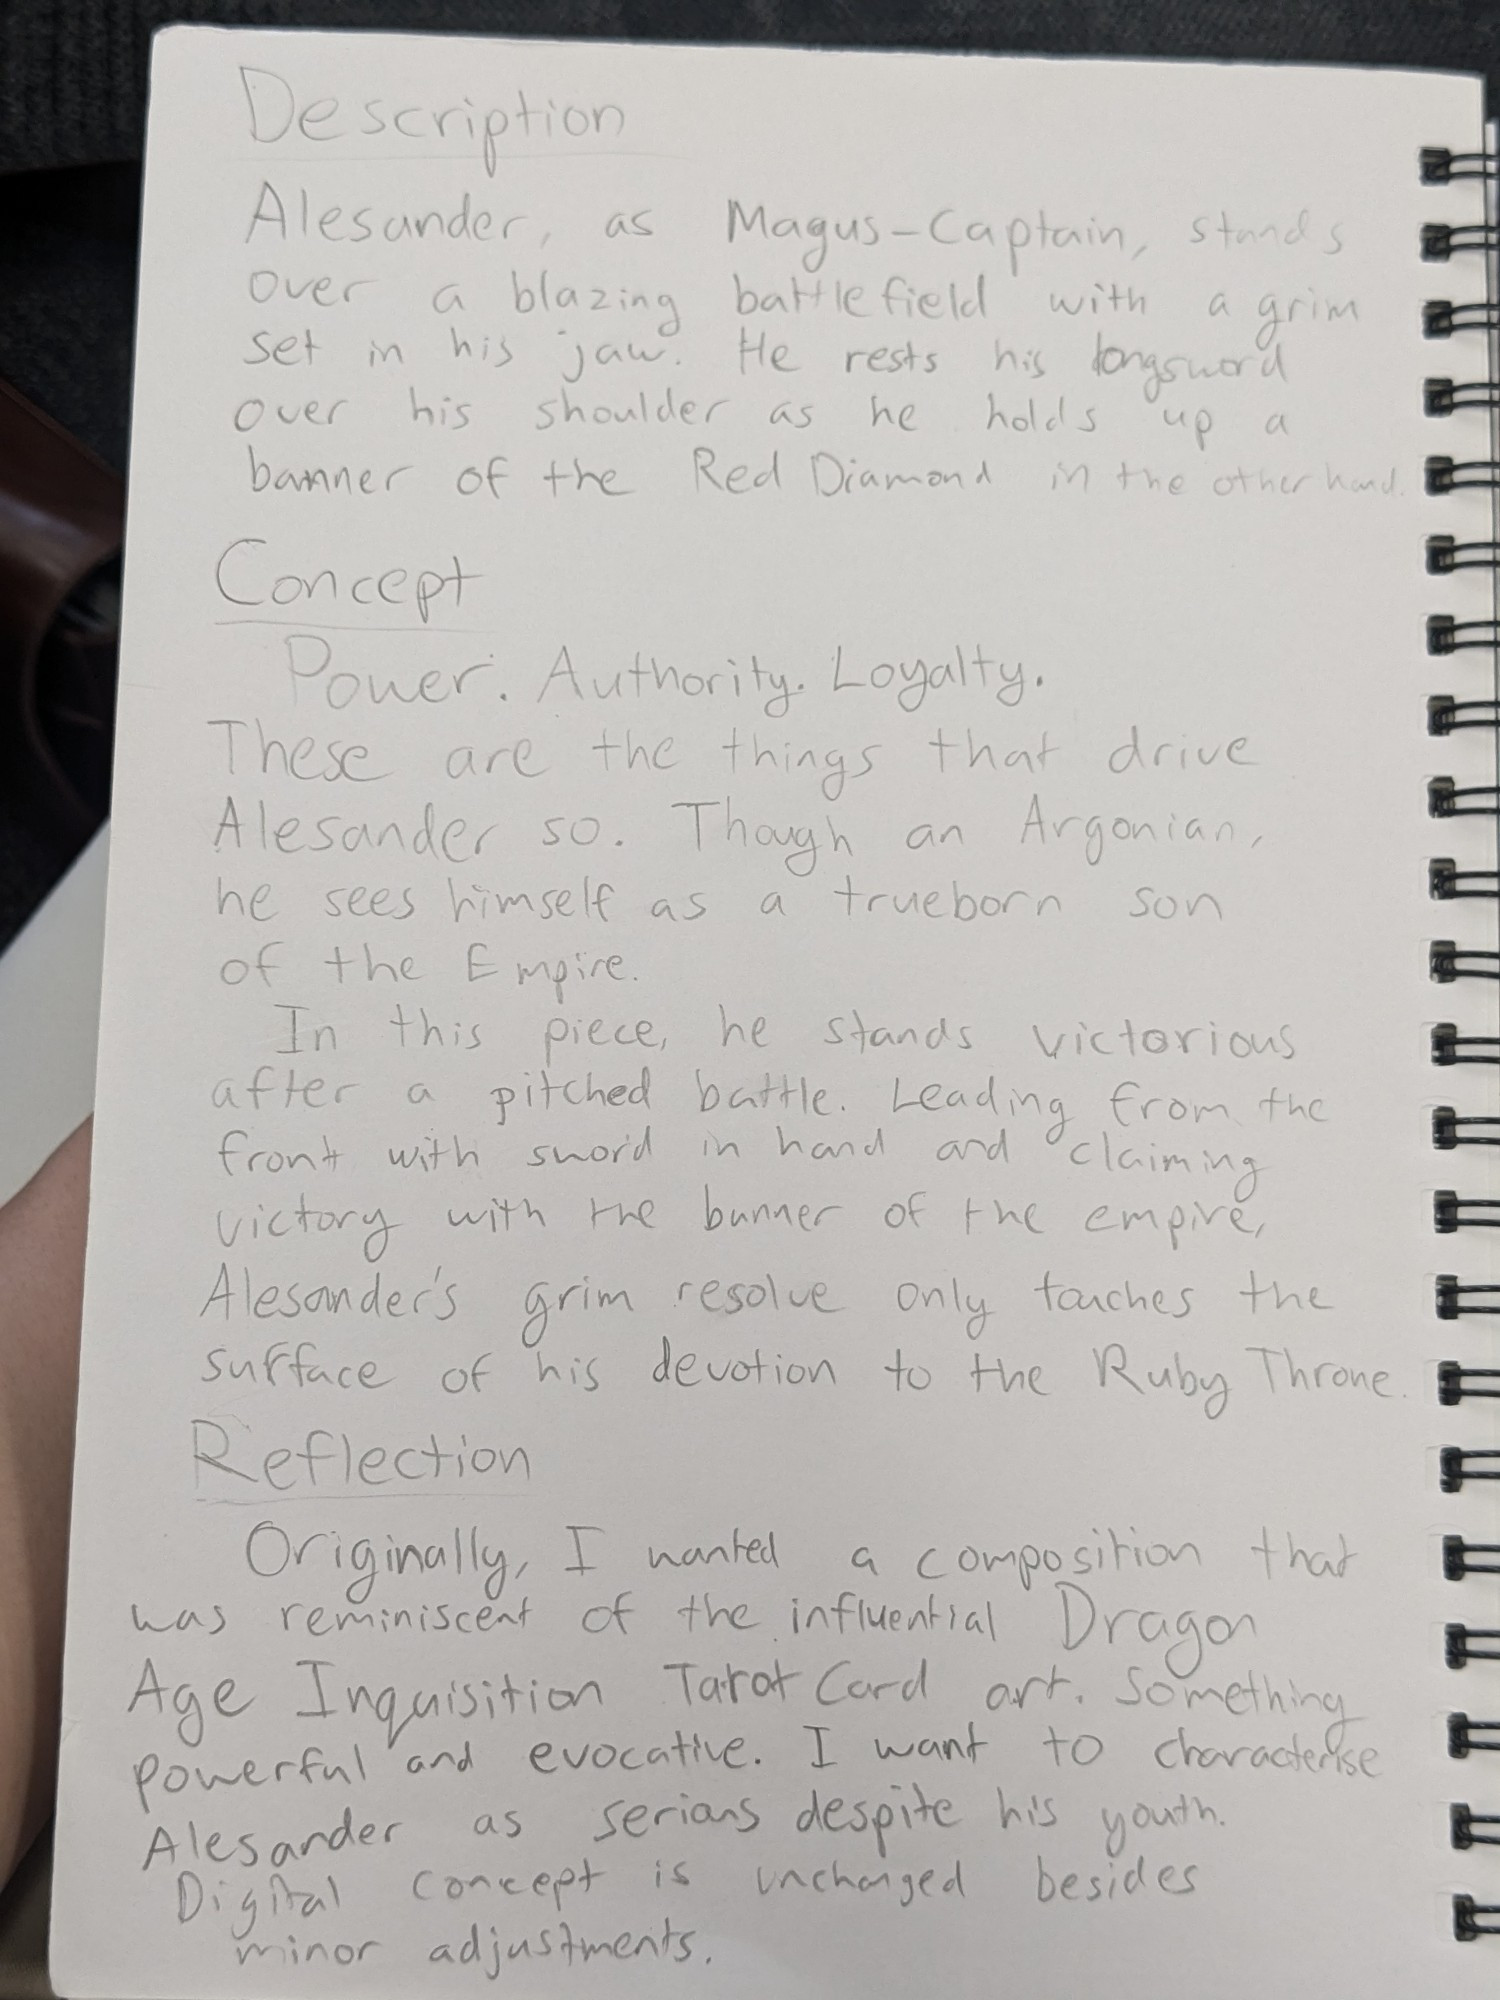 Description
Alesander, as Magus-Captain, stands
over a blazing battlefield with a grim
set in his jaw. He rests his longsword
over his shoulder as he holds up a
banner of the Red Diamond in the other hand.
Concept
Power. Authority. Loyalty.
These are the things that drive
Alesander so. Though an Argonian,
he sees himself as a trueborn son
of the Empire.
In this piece, he stands victorious
after a pitched battle. Leading from the
front with sword in hand and claiming
victory with the banner of the empire,
Alesander's grim resolve only touches the
surface of his devotion to the Ruby Throne.
Reflection
Originally, I wanted a composition that
was reminiscent of the influential Dragon
Age Inquisition Tarot Card art. Something
powerful and evocative. I want to characterise
Alesander as serious despite his youth.
Digital concept is unchanged besides
minor adjustments.